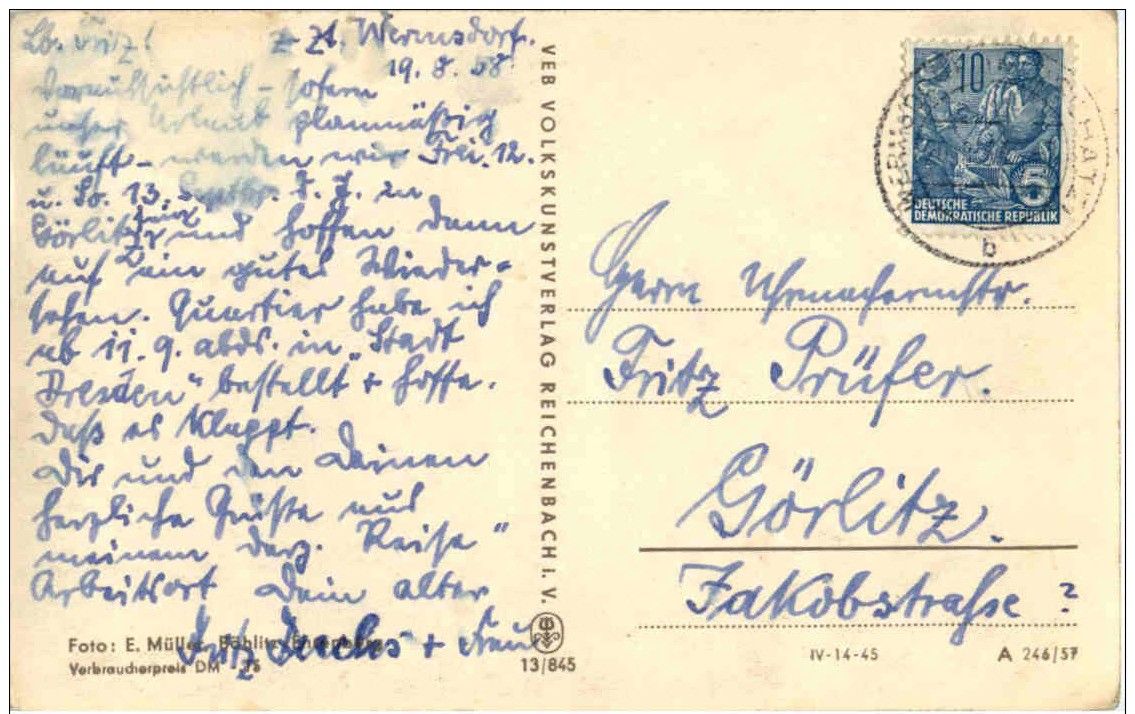 Lb. Fritz!
z. Zt. Wermsdorf.
19.8.58
Voraussichtlich – sofern
unser Urlaub planmäßig
läuft – werden wir Frei. 12.
u. So. 13. Septbr. d. J. in
Görlitz sein und hoffen dann
auf ein gutes Wieder-
sehen. Quartier habe ich
ab 11.9. abds. in „Stadt
Dresden" bestellt + hoffe.
daß es klappt.
Dir und den Deinen
herzliche Grüße aus
meinem derz. Reise"
Arbeitsort Dein alter
Fritz + Frau
Foto: E. Müller, Böhlitz-Ehrenberg
Verbraucherpreis DM 15
VEB VOLKSKUNSTVERLAG REICHENBACH i. V.
13/845
10
5
DEUTSCHE
DEMOKRATISCHE REPUBLIK
b
Herrn Uhrmachermstr.
Fritz Prüfer.
Görlitz.
Jakobstraße?
IV-14-45
A 246/57